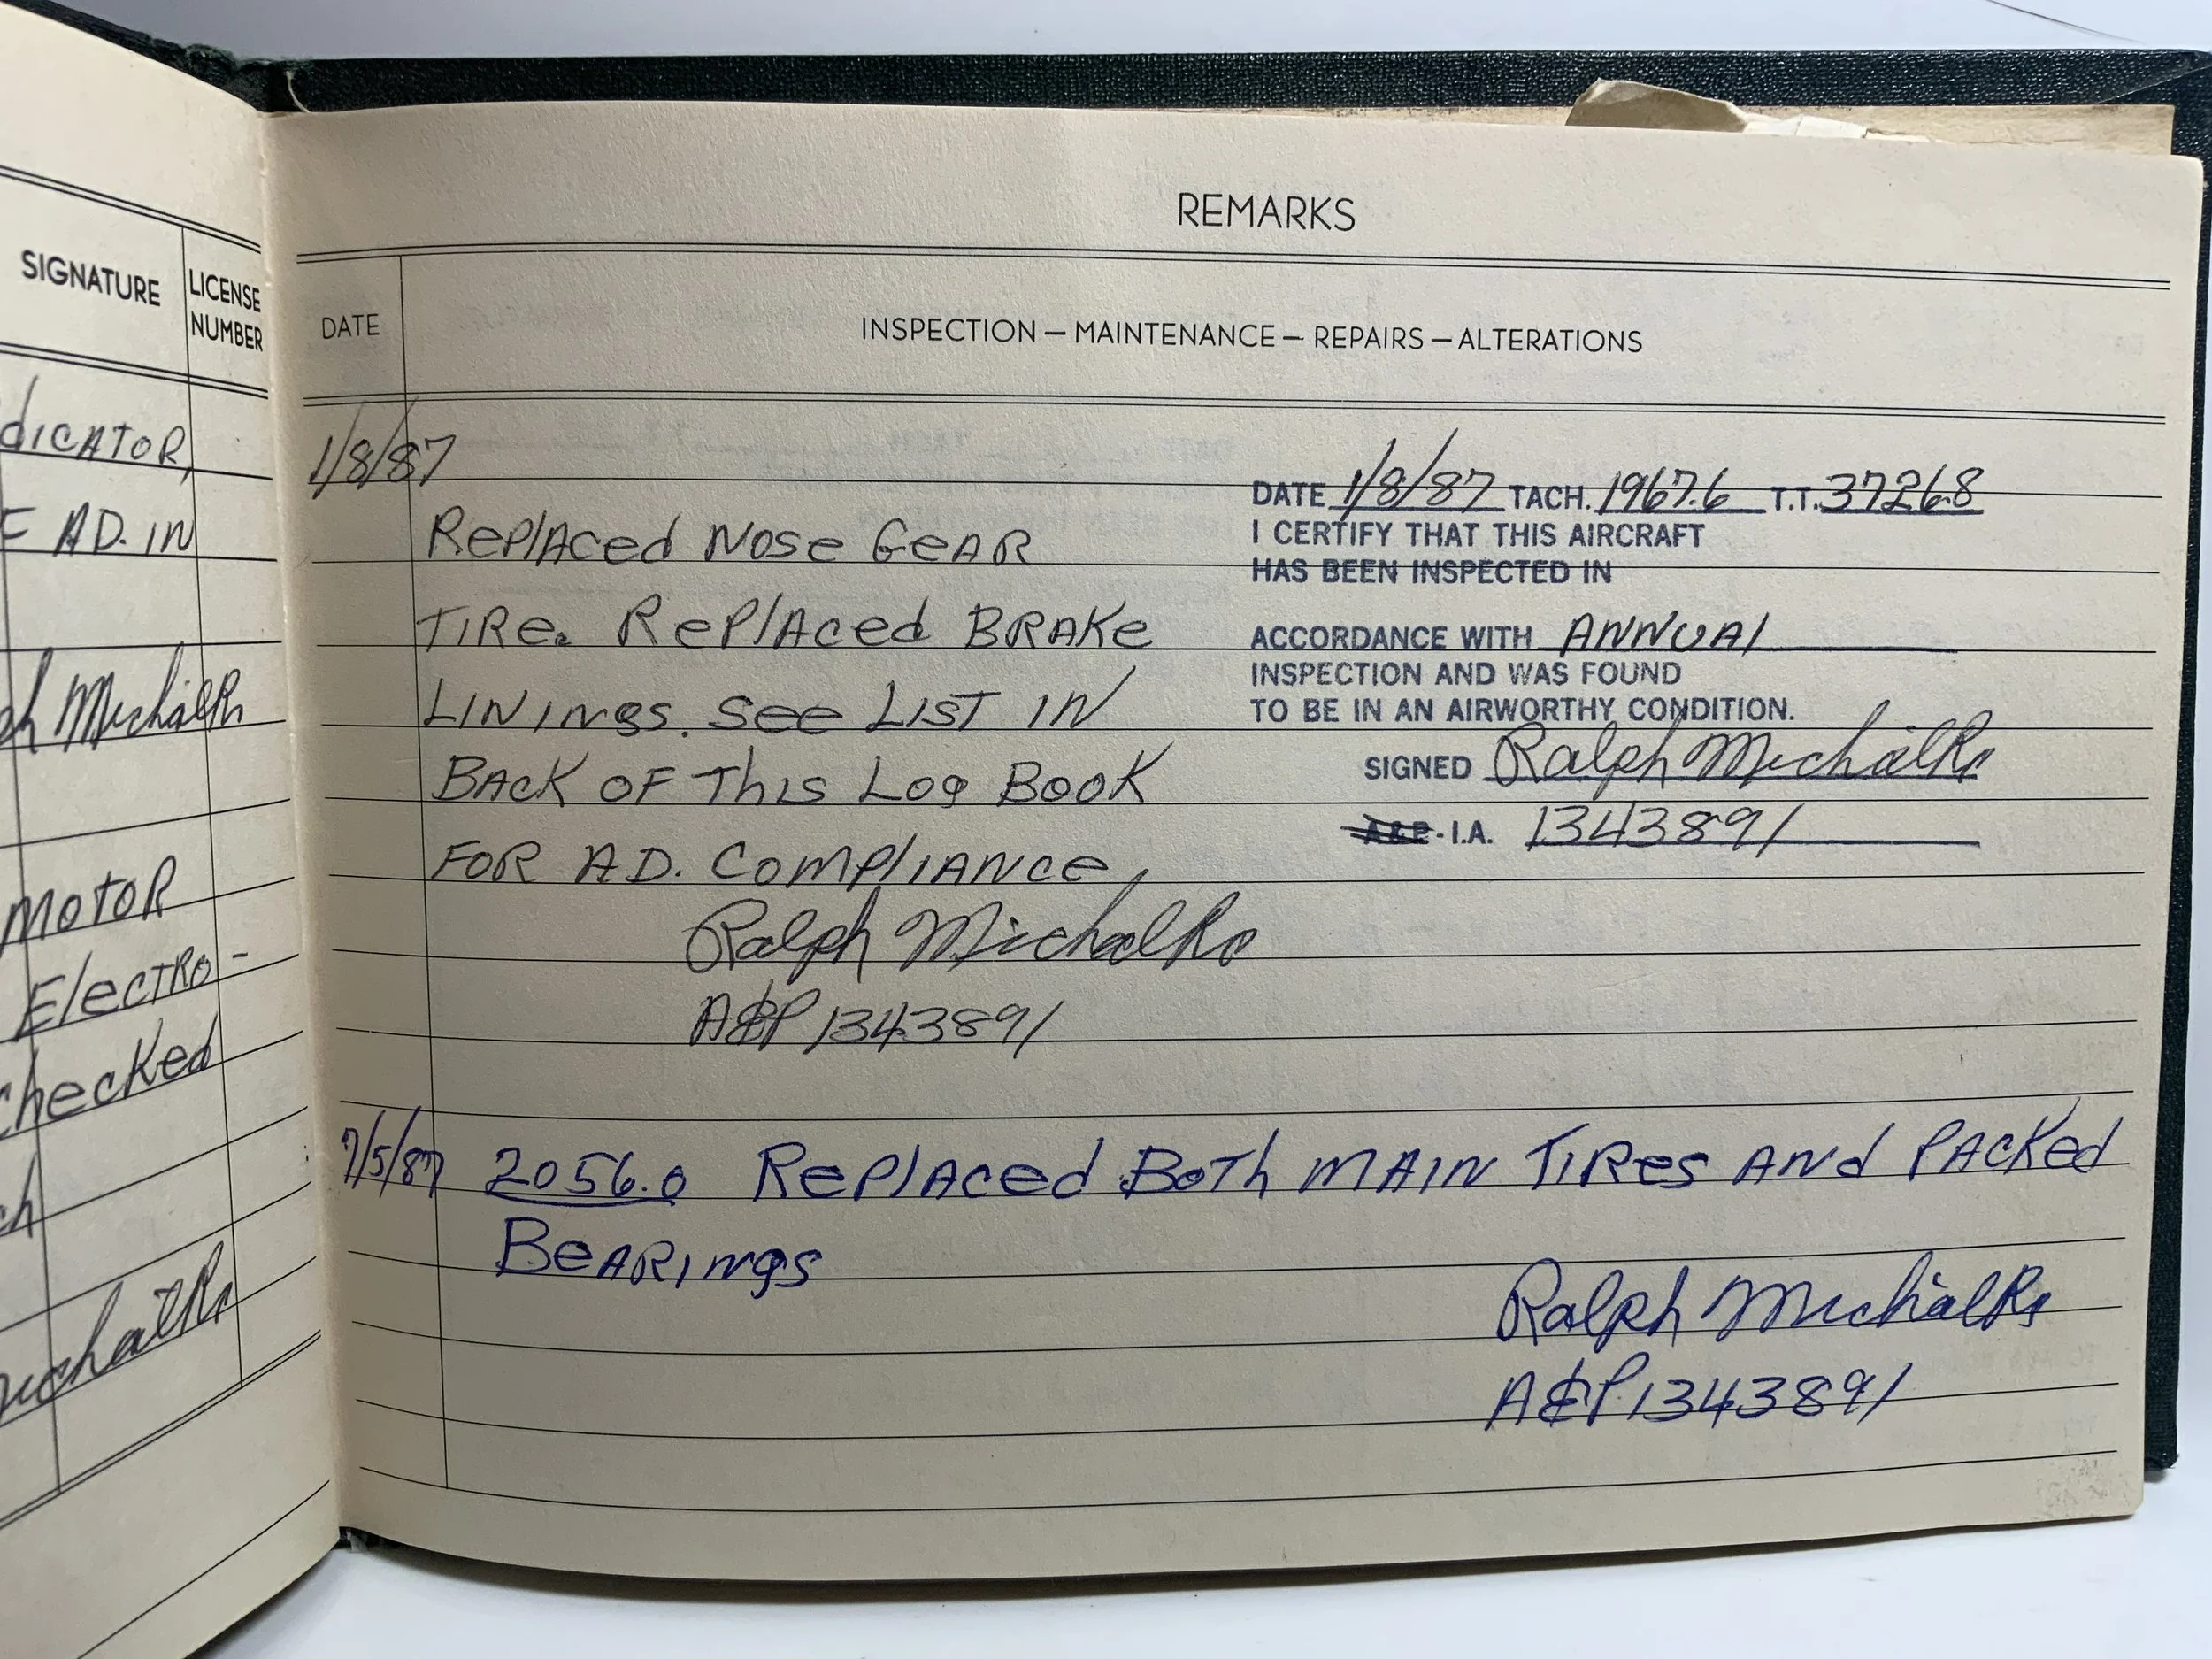 SIGNATURE
LICENSE
NUMBER
DICATOR,
AD. IN
Michalk
MOTOR
ElecTRO-
checked
REMARKS
DATE
INSPECTION — MAINTENANCE — REPAIRS — ALTERATIONS
1/8/87
RePlAced Nose GeAR
TIRe. RePlAced BRAKe
LININgs. See LIST IN
BAcK OF This Log BOOK
FOR A.D. ComplIANce,
Ralph Michalk
A&P 1343891
DATE 1/8/87 TACH. 1967.6 T.T. 3726.8
I CERTIFY THAT THIS AIRCRAFT
HAS BEEN INSPECTED IN
ACCORDANCE WITH ANNUAl
INSPECTION AND WAS FOUND
TO BE IN AN AIRWORTHY CONDITION.
SIGNED Ralph Michalk
A&P - I.A. 1343891
7/5/87 2056.0 RePlAced BoTh MAIN TIRes ANd PAcKed
BeARINgs
Ralph Michalk
A&P 1343891